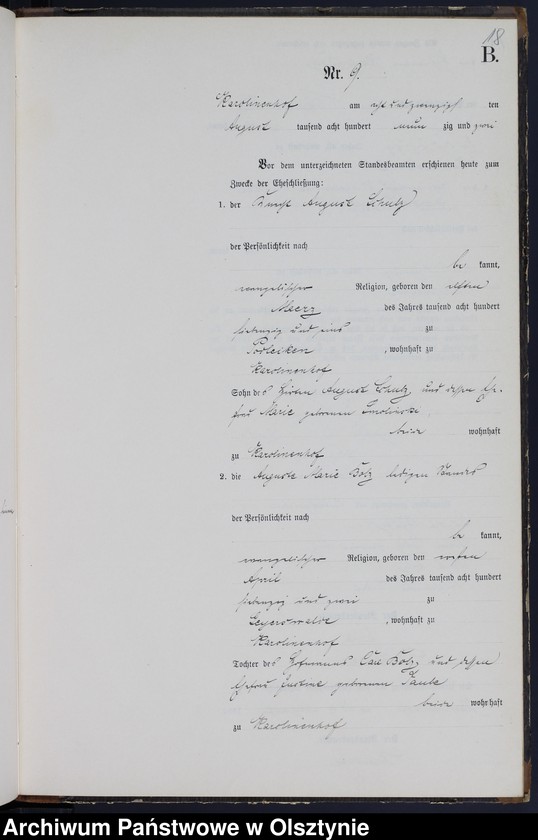 18
B.
Nr. 9.
Karolinenhof am acht und zwanzigsten
August tausend acht hundert neun zig und zwei
Vor dem unterzeichneten Standesbeamten erschienen heute zum
Zwecke der Eheschließung:
1. der Knecht August Schulz
der Persönlichkeit nach
be kannt,
evangelischer Religion, geboren den elften
Maerz des Jahres tausend acht hundert
siebenzig und eins zu
Podleiken, wohnhaft zu
Karolinenhof
Sohn des Hirten August Schulz und dessen Ehe-
frau Marie geborenen
beide wohnhaft
zu Karolinenhof
2. die Auguste Marie Bolz ledigen Standes
der Persönlichkeit nach
be kannt,
evangelischer Religion, geboren den ersten
April des Jahres tausend acht hundert
siebenzig und zwei zu
Geyerswalde, wohnhaft zu
Karolinenhof
Tochter des Hofmanns Carl Bolz und dessen
Ehefrau Justine geborenen
beide wohnhaft
zu Karolinenhof
Archiwum Państwowe w Olsztynie